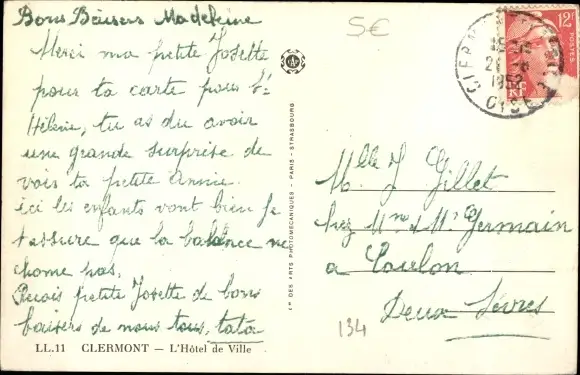 Bons Baisers Madeleine
Merci ma petite Josette
pour ta carte pour Ste
Hélène, tu as du avoir
une grande surprise de
vois ta petite Annie.
ici les enfants vont bien je
t'assure que la balance ne
chome pas.
Recois petite Josette de bons
baisers de nous tous, tata
LL.11 CLERMONT – L'Hôtel de Ville
DES ARTS PHOTOMECANIQUES - PARIS - STRASBOURG
5€
12F
POSTES
RF
CLERMONT
OISE
Mlle J Gillet
chez Mme & Mr Germain
a Coulon
Deux Sèvres
134